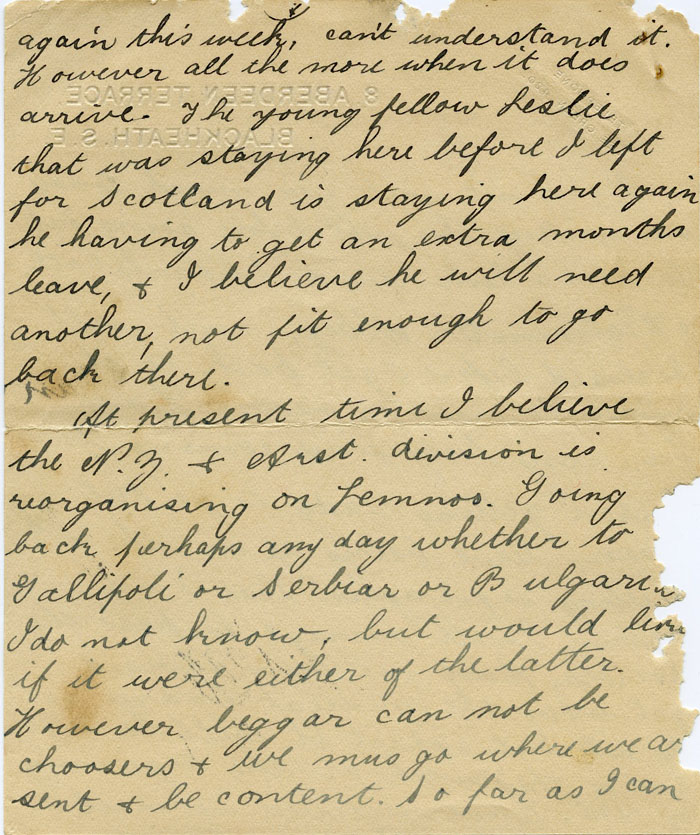 again this week, can't understand it.
However all the more when it does
arrive. The young fellow Leslie
that was staying here before I left
for Scotland is staying here again
he having to get an extra months
leave, & I believe he will need
another, not fit enough to go
back there.
At present time I believe
the N.Z. & Aust. division is
reorganising on Lemnos. Going
back perhaps any day whether to
Gallipoli or Serbiar or Bulgaria
I do not know, but would
if it were either of the latter.
However beggar can not be
choosers & we mus go where we ar
sent & be content. So far as I can
8 ABERDEEN TERRACE
BLACKHEATH. S.E.